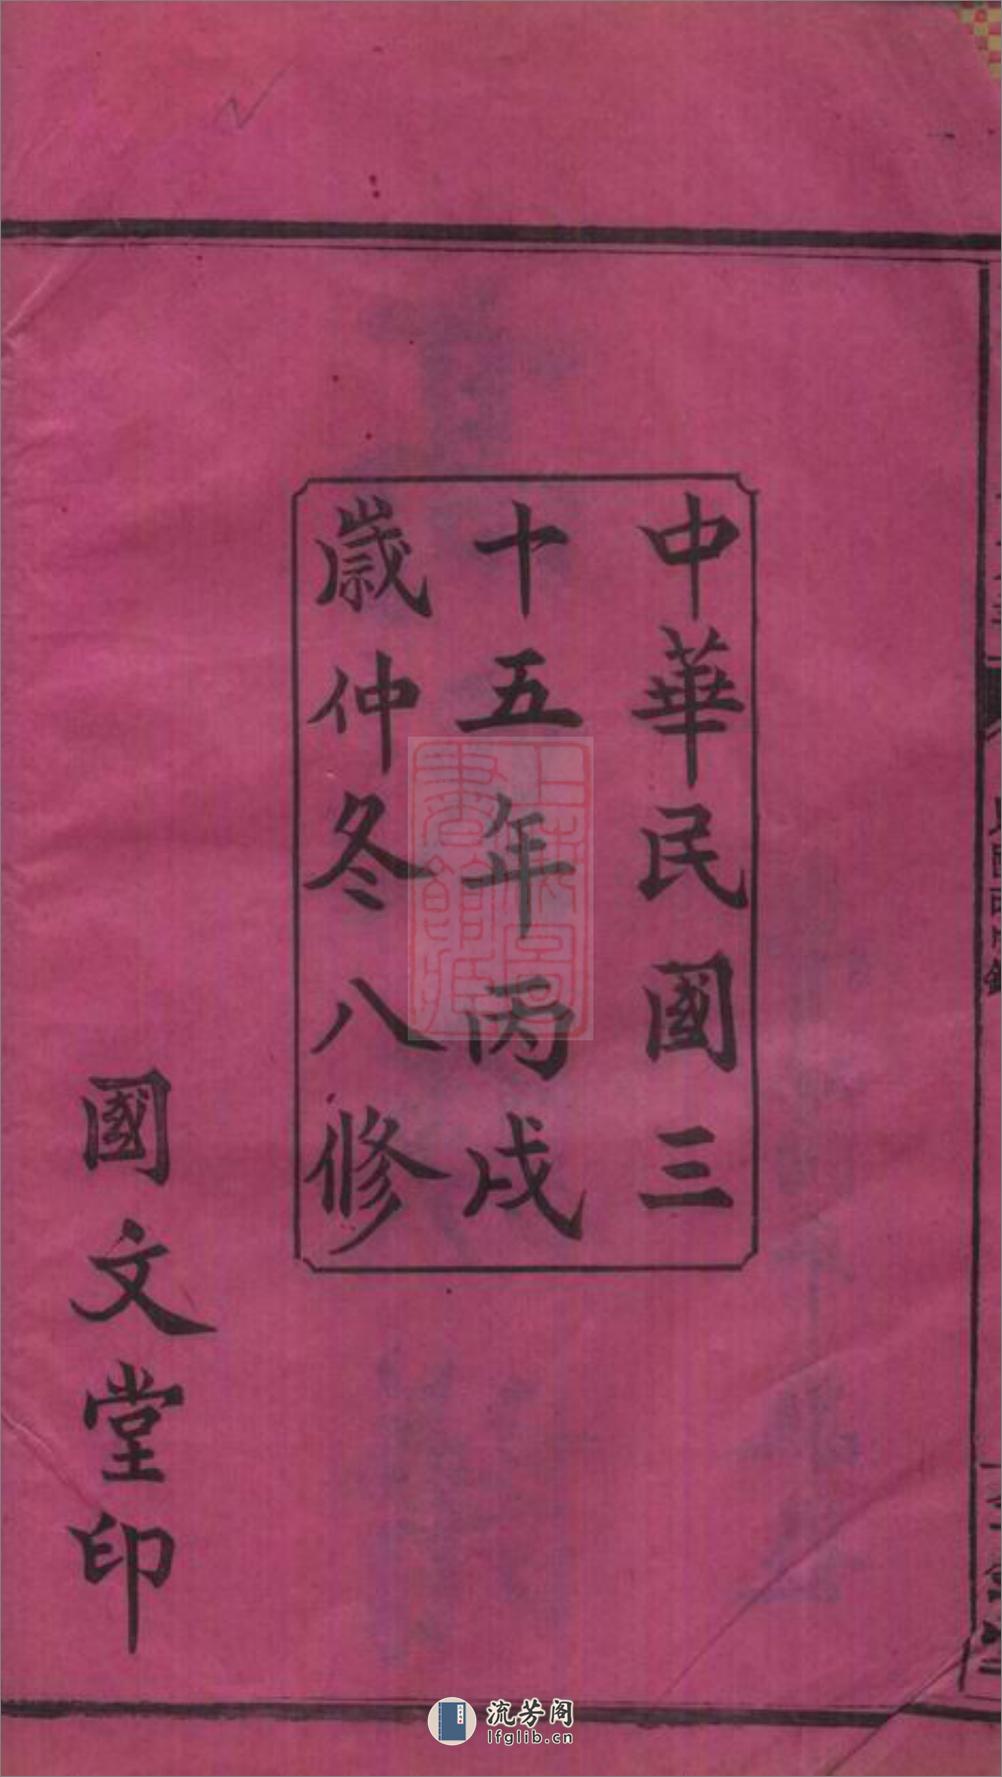 中華民國三
十五年丙戌
歲仲冬八修
國文堂印
流芳阁
lfglib.cn